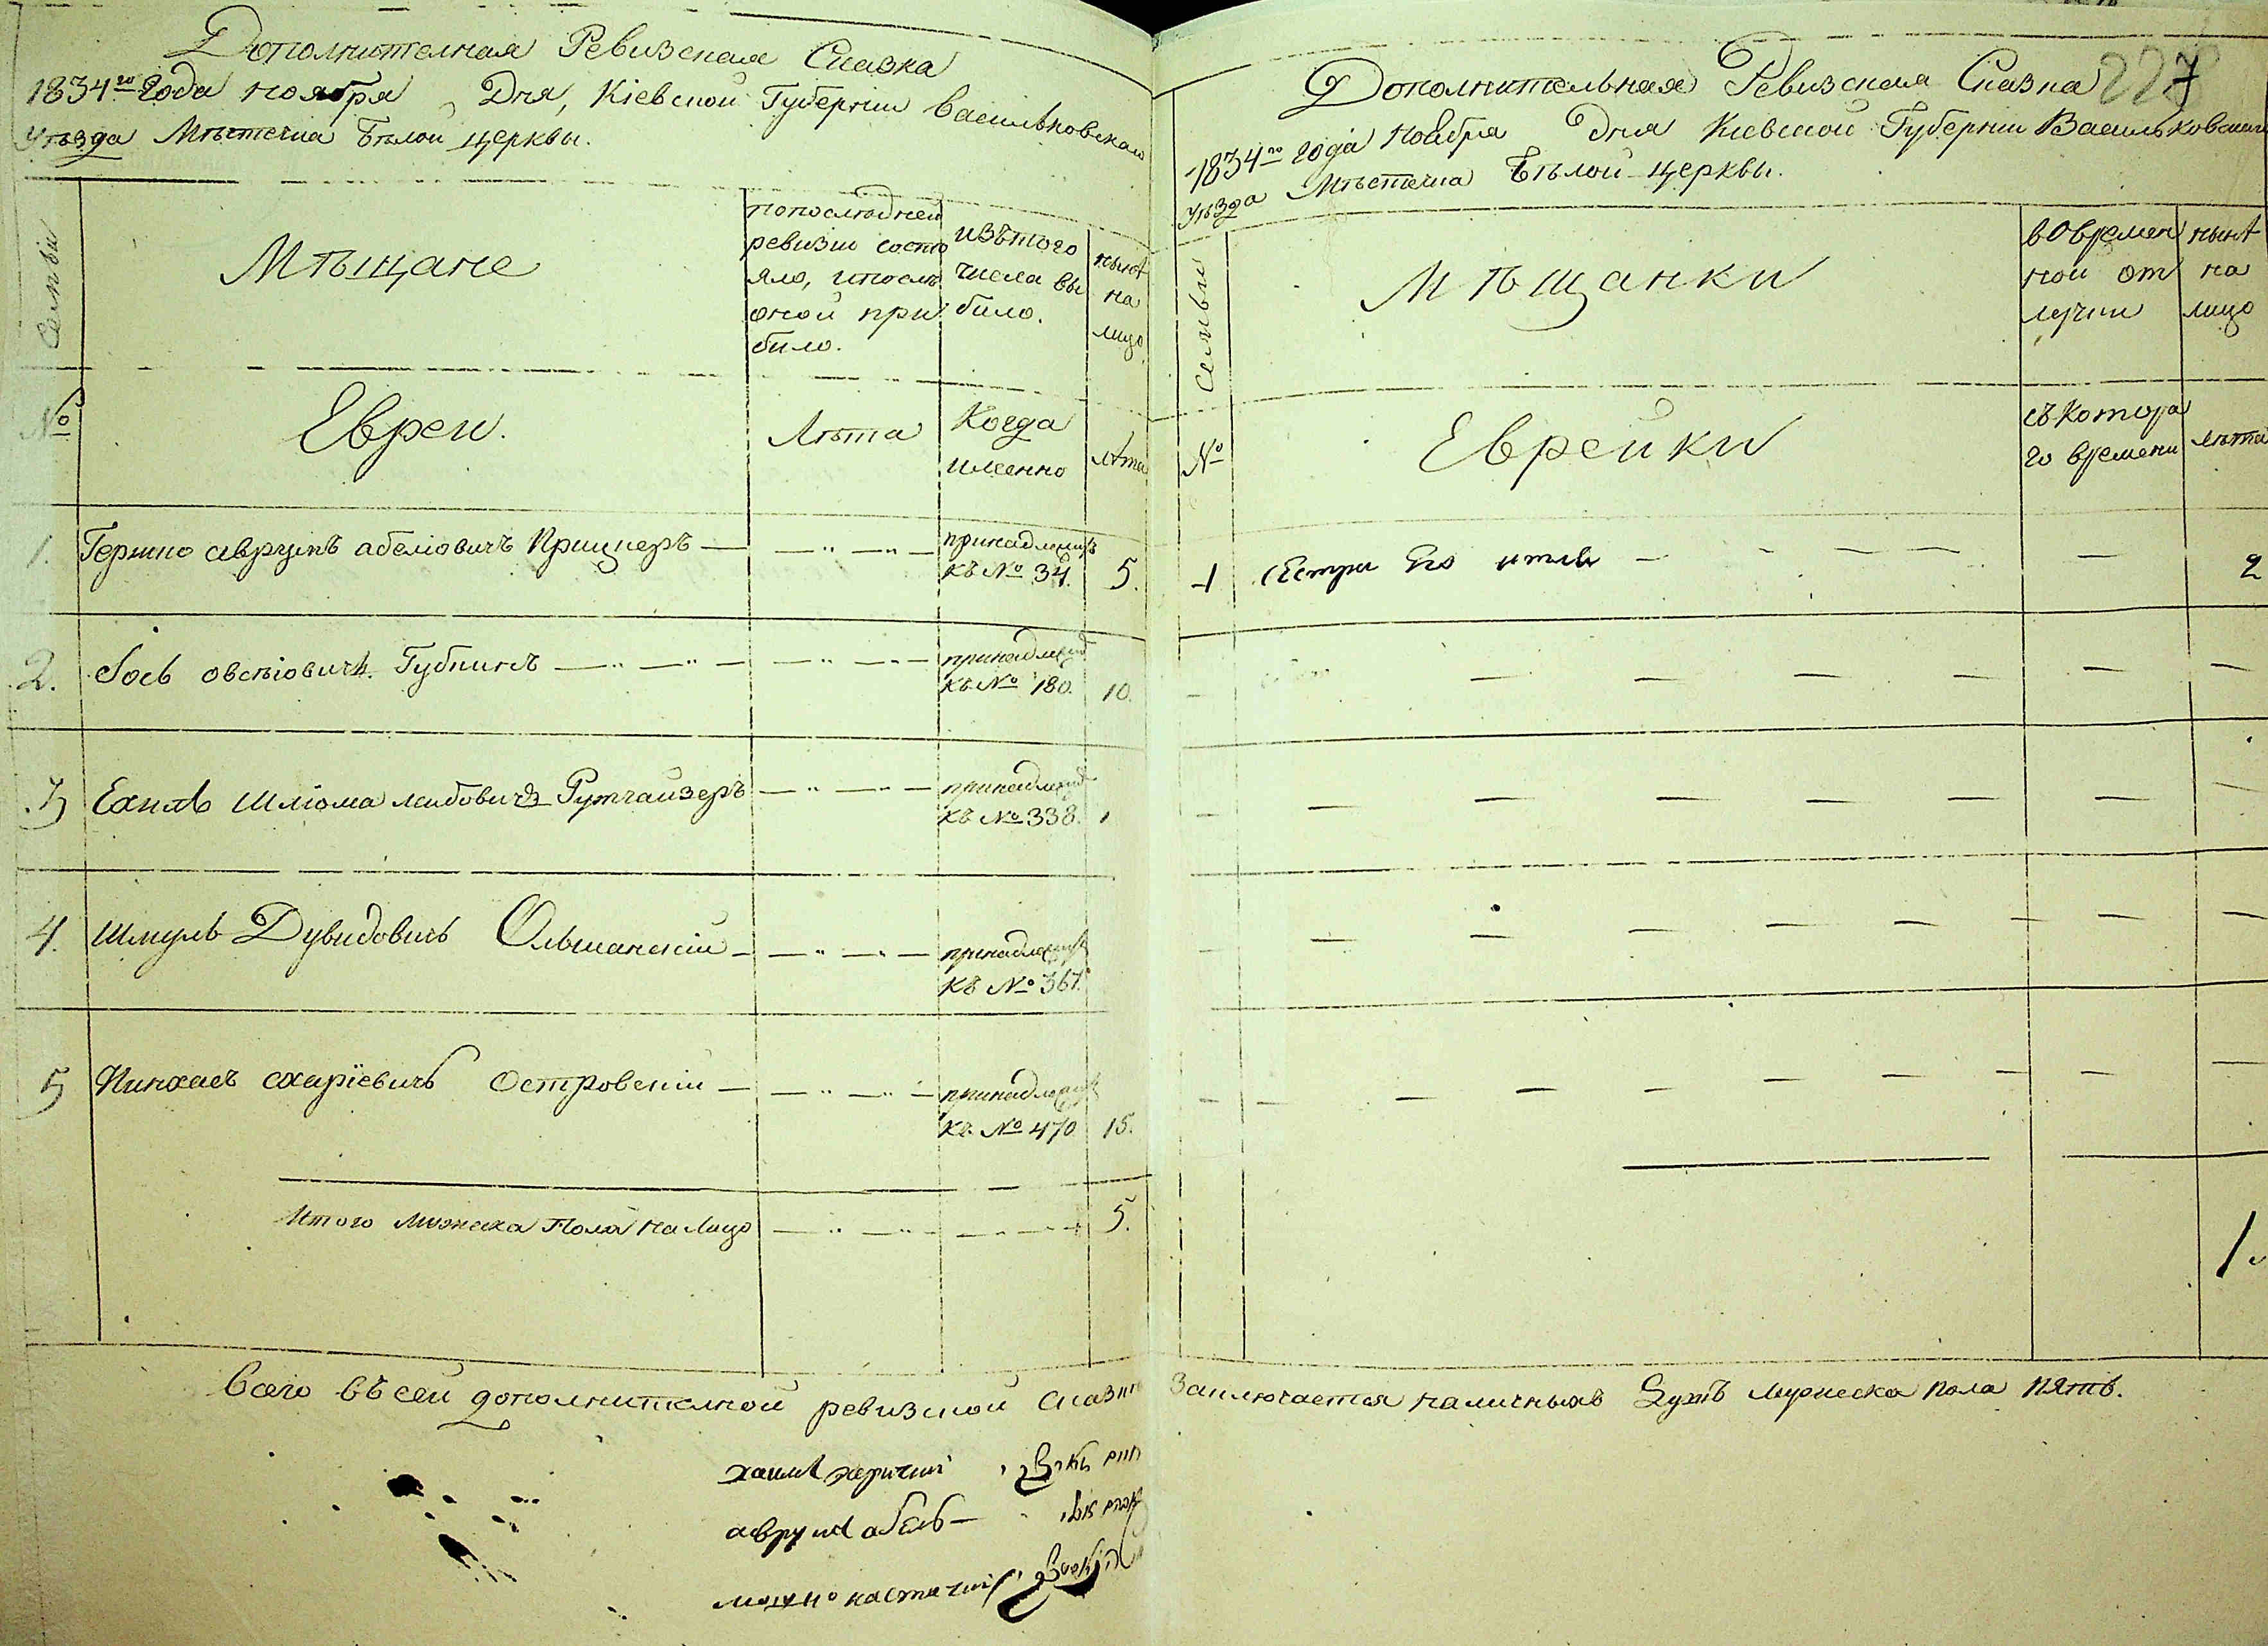 Дополнителная Ревизская Сказка
1834го года ноября Дня, Кіевской Губерніи Васильковскаго
Уѣзда Мѣстечка Бѣлой церквы.
Семьи
Мѣщане
попослѣдней
ревизіи состо
яло, ипослѣ
оной при
било.
изътого
числа вы
било.
нынѣ
на
лицо
№
Евреи.
Лѣта
Когда
именно
лѣта
1. Гершко аврумъ абеліовичъ Прицкеръ принадлежитъ
къ № 34. 5.
2. Іось овсѣіовичъ Губникъ принадлежит
къ № 180. 10.
3 Ехиль Шліома лейбовичъ Рутгайзеръ принадлежит
къ № 338. 1
4. Шмуль Дувидовичь Ольшанскій принадлежитъ
къ № 367.
5 Пинхасъ схаріевичь Островскій принадлежитъ
къ № 470 15.
Итого мужеска Пола на Лицо 5.
227
Дополнительная Ревизская Сказка
1834го года Ноября дня Кіевской Губерніи Васильковскаго
Уѣзда Мѣстечка Бѣлой церквы.
Семьи
Мѣщанки
вОвремен
ной от
лучки
нынѣ
на
лицо
№
Еврейки
съКотора
го времени
лѣта
1 сЕстра Его 2
1
Всего въ сей дополнителной ревизской Сказке Заключается наличныхъ Душъ Мужеска пола пять.
хаим
аврум абель
мошко